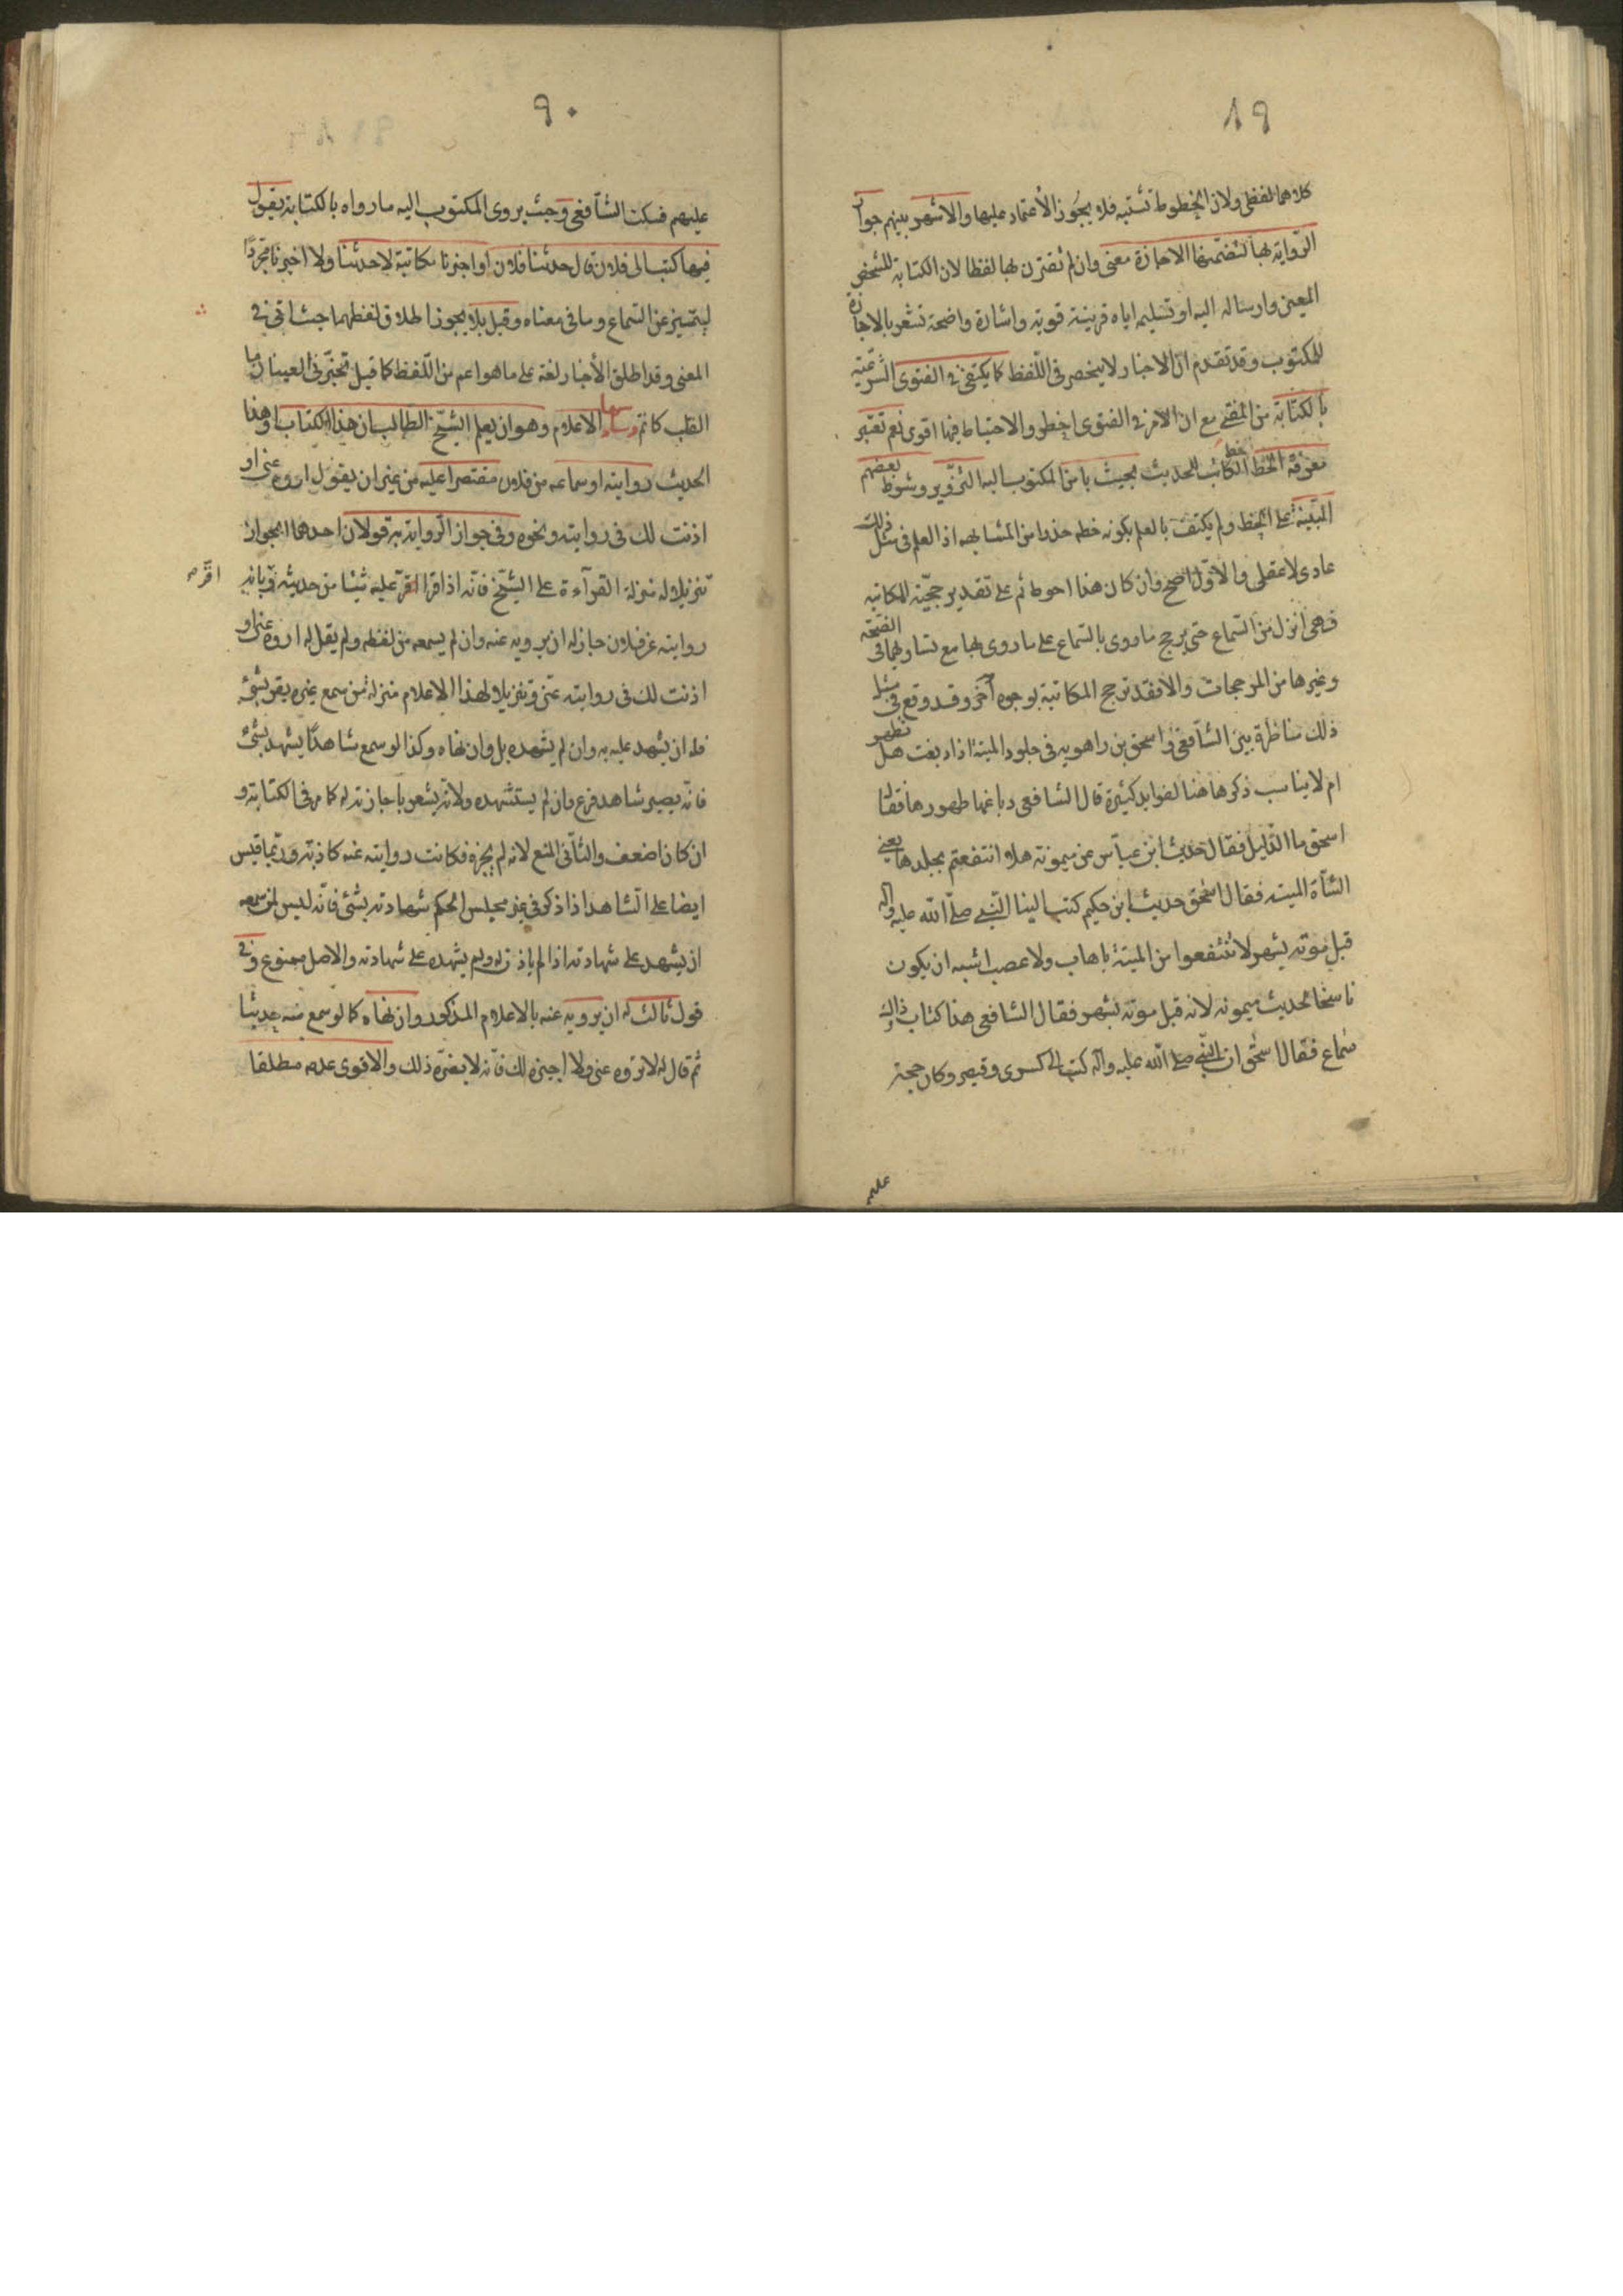 ٨٩
كلاهما لفظى ولان الخطوط تشتبه فلا يجوز الأعتماد عليها والاشهر بينهم جواز
الرّواية بها لتضمّنها الاجازة معنى وان لم تقترن بها لفظا لان الكتابة للشخص
المعين وارساله اليه او تسليمه اياه قرينة قوية واشارة واضحة تشعر بالاجازة
للمكتوب وقد تقدم انّ الاخبار لا ينحصر فى اللّفظ كما يكتفى فى الفتوى الشرعيّة
بالكتابة من المفتى مع ان الامر فى الفتوى اخطر والاحتياط فيها اقوى نعم تعتبر
معرفة الخطّ خط الكاتب للحديث بحيث يامن المكتوب اليه التزوير وشرط بعضهم
البيّنة على الخط ولم يكتف بالعلم بكونه خطه حذرا من المشابهة اذ العلم فى مثل ذلك
عادى لا عقلى والاوّل اصح وان كان هذا احوط ثم على تقدير حجّية المكاتبه
فهى انزل من السّماع حتى يرجح ما روى بالسّماع على ما روى بها مع تساويهما فى الصّحّة
وغيرها من المرجحات والا فقد ترجح المكاتبة بوجوه آخر وقد وقع فى مثل
ذلك مناظرة بين الشّافعى واسحق بن راهويه فى جلود الميتة اذا دبغت هل تطهر
ام لا يناسب ذكرها هنا لفوايد كثيرة قال الشافعى دباغها طهورها فقال
اسحق ما الدّليل فقال حديث ابن عبّاس عن ميمونة هلا انتفعتم بجلدها يعنى
الشّاة الميته فقال اسحق حديث ابن حكيم كتب الينا النّبى صلّى الله عليه وآله
قبل موته بشهر لا تنتفعوا من الميتة باهاب ولا عصب اشبه ان يكون
ناسخا لحديث ميمونه لانه قبل موته بشهر فقال الشافعى هذا كتاب وذاك
سماع فقال اسحق ان النّبى صلى الله عليه وآله كتب الى كسرى وقيصر وكان حجة
عليهم
٩٠
عليهم فسكت الشّافعى وحيث يروى المكتوب اليه ما رواه بالكتابة يقول
فيها كتب الى فلان قال حدثنا فلان او اخبرنا مكاتبة لا حدثنا ولا اخبرنا مجرّدًا
ليتميز عن السّماع وما فى معناه وقيل بل يجوز اطلاق لفظهما حيث انّه فى
المعنى وقد اطلق الأخبار لغة على ما هو اعم من اللّفظ كما قيل تخبّرنى العينان ما
القلب كاتم وسابعها الاعلام وهو ان يعلم الشيّخ الطالب ان هذا الكتاب او هذا
الحديث روايته او سماعه من فلان مقتصرا عليه من غير ان يقول اروه عنى او
اذنت لك فى روايته ونحوه وفى جواز الرّواية به قولان احدهما الجواز
تنزيلا له منزلة القرآءة على الشيّخ فانّه اذا قرا عليه شيئا من حديثه واقرّ بانه
اقرّ صح
روايته عن فلان جاز له ان يرويه عنه وان لم يسمعه من لفظه ولم يقل له اروه عنى او
اذنت لك فى روايته عنّى وتنزيلا لهذا الاعلام منزلة من سمع غيره يقر بشئ
فله ان يشهد عليه به وان لم يشهده بل وان نهاه وكذا لو سمع شاهدًا يشهد بشئ
فانّه يصير شاهد فرع وان لم يستشهده ولانّه يشعر باجازته له كما مر فى الكتابة و
ان كان اضعف والثّانى المنع لانه لم يجزه فكانت روايته عنه كاذبة وربّما قيس
ايضا على الشاهد اذا ذكر فى غير مجلس الحكم شهادته بشئ فانّه ليس لمن سمعه
ان يشهد على شهادته اذا لم ياذن له ولم يشهده على شهادته والاصل ممنوع وفى
قول ثالث له ان يرويه عنه بالاعلام المذكور وان نهاه كما لو سمع منه حديثا
ثم قال له لا تروه عنى ولا اجيزه لك فانّه لا يضرّه ذلك والاقوى عدمه مطلقا